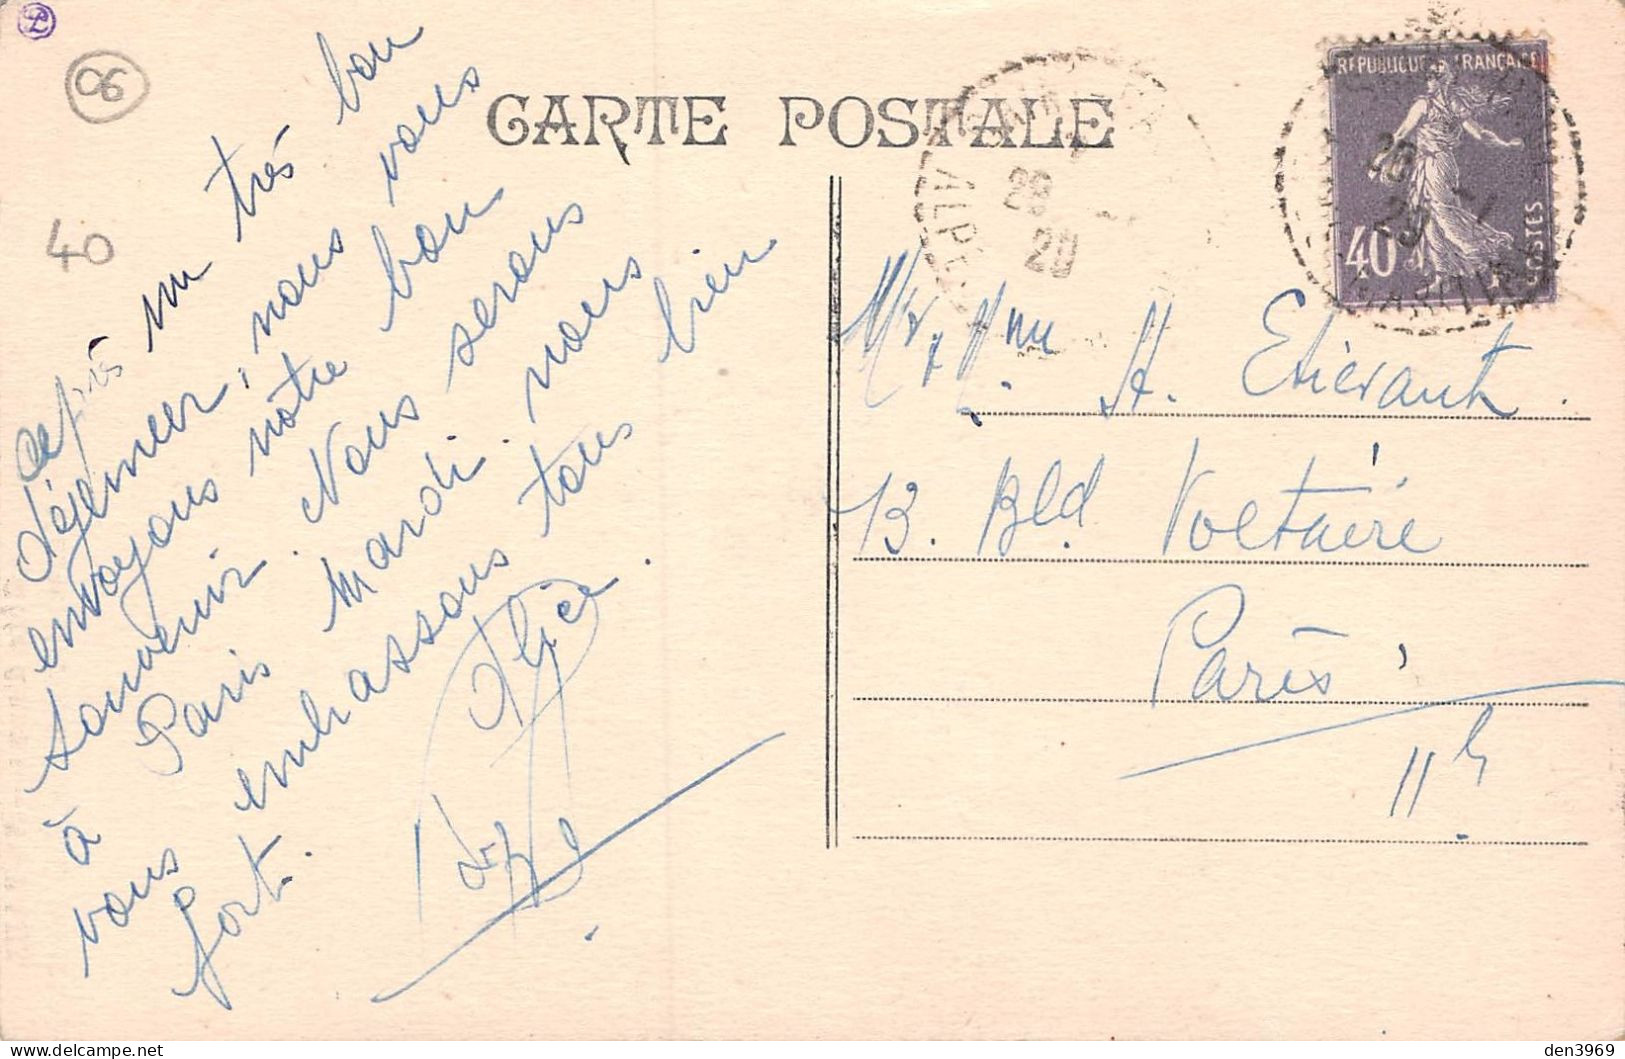 06
40
CARTE POSTALE
RÉPUBLIQUE FRANÇAISE
40
POSTES
ALPES
29
29
MARITIMES
après un très bon
déjeuner, nous vous
envoyons notre bon
souvenir. Nous serons
à Paris Mardi. nous
vous embrassons tous bien
fort. Alice.
Mr, Mme A. Etiévant.
13. Bld Voltaire
Paris,
11e
den3969